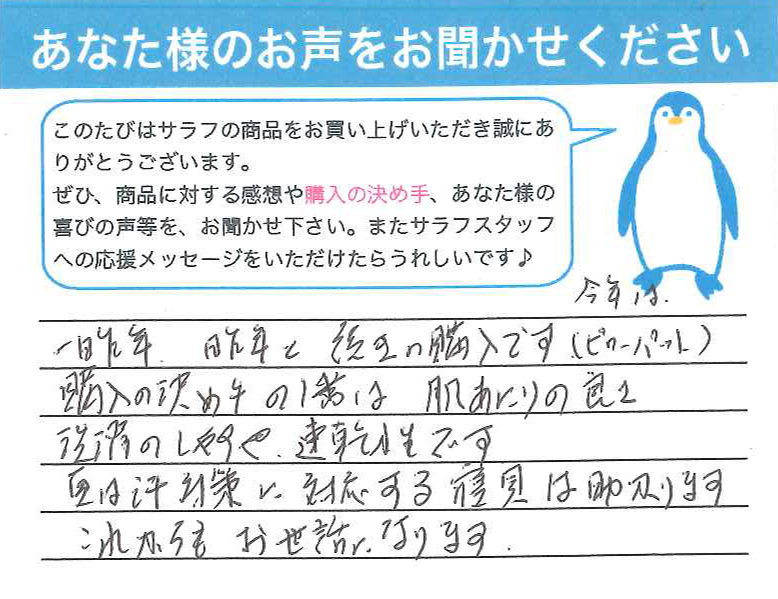 あなた様のお声をお聞かせください
このたびはサラフの商品をお買い上げいただき誠にあ
りがとうございます。
ぜひ、商品に対する感想や購入の決め手、あなた様の
喜びの声等を、お聞かせ下さい。またサラフスタッフ
への応援メッセージをいただけたらうれしいです♪
今年は.
一昨年 昨年と 購入です(ピローパット)
購入の決め手の1番は 肌あたりの良さ
洗濯のしやすや、速乾性です
夏は汗対策に対応する寝具は助かります
これからも お世話になります.